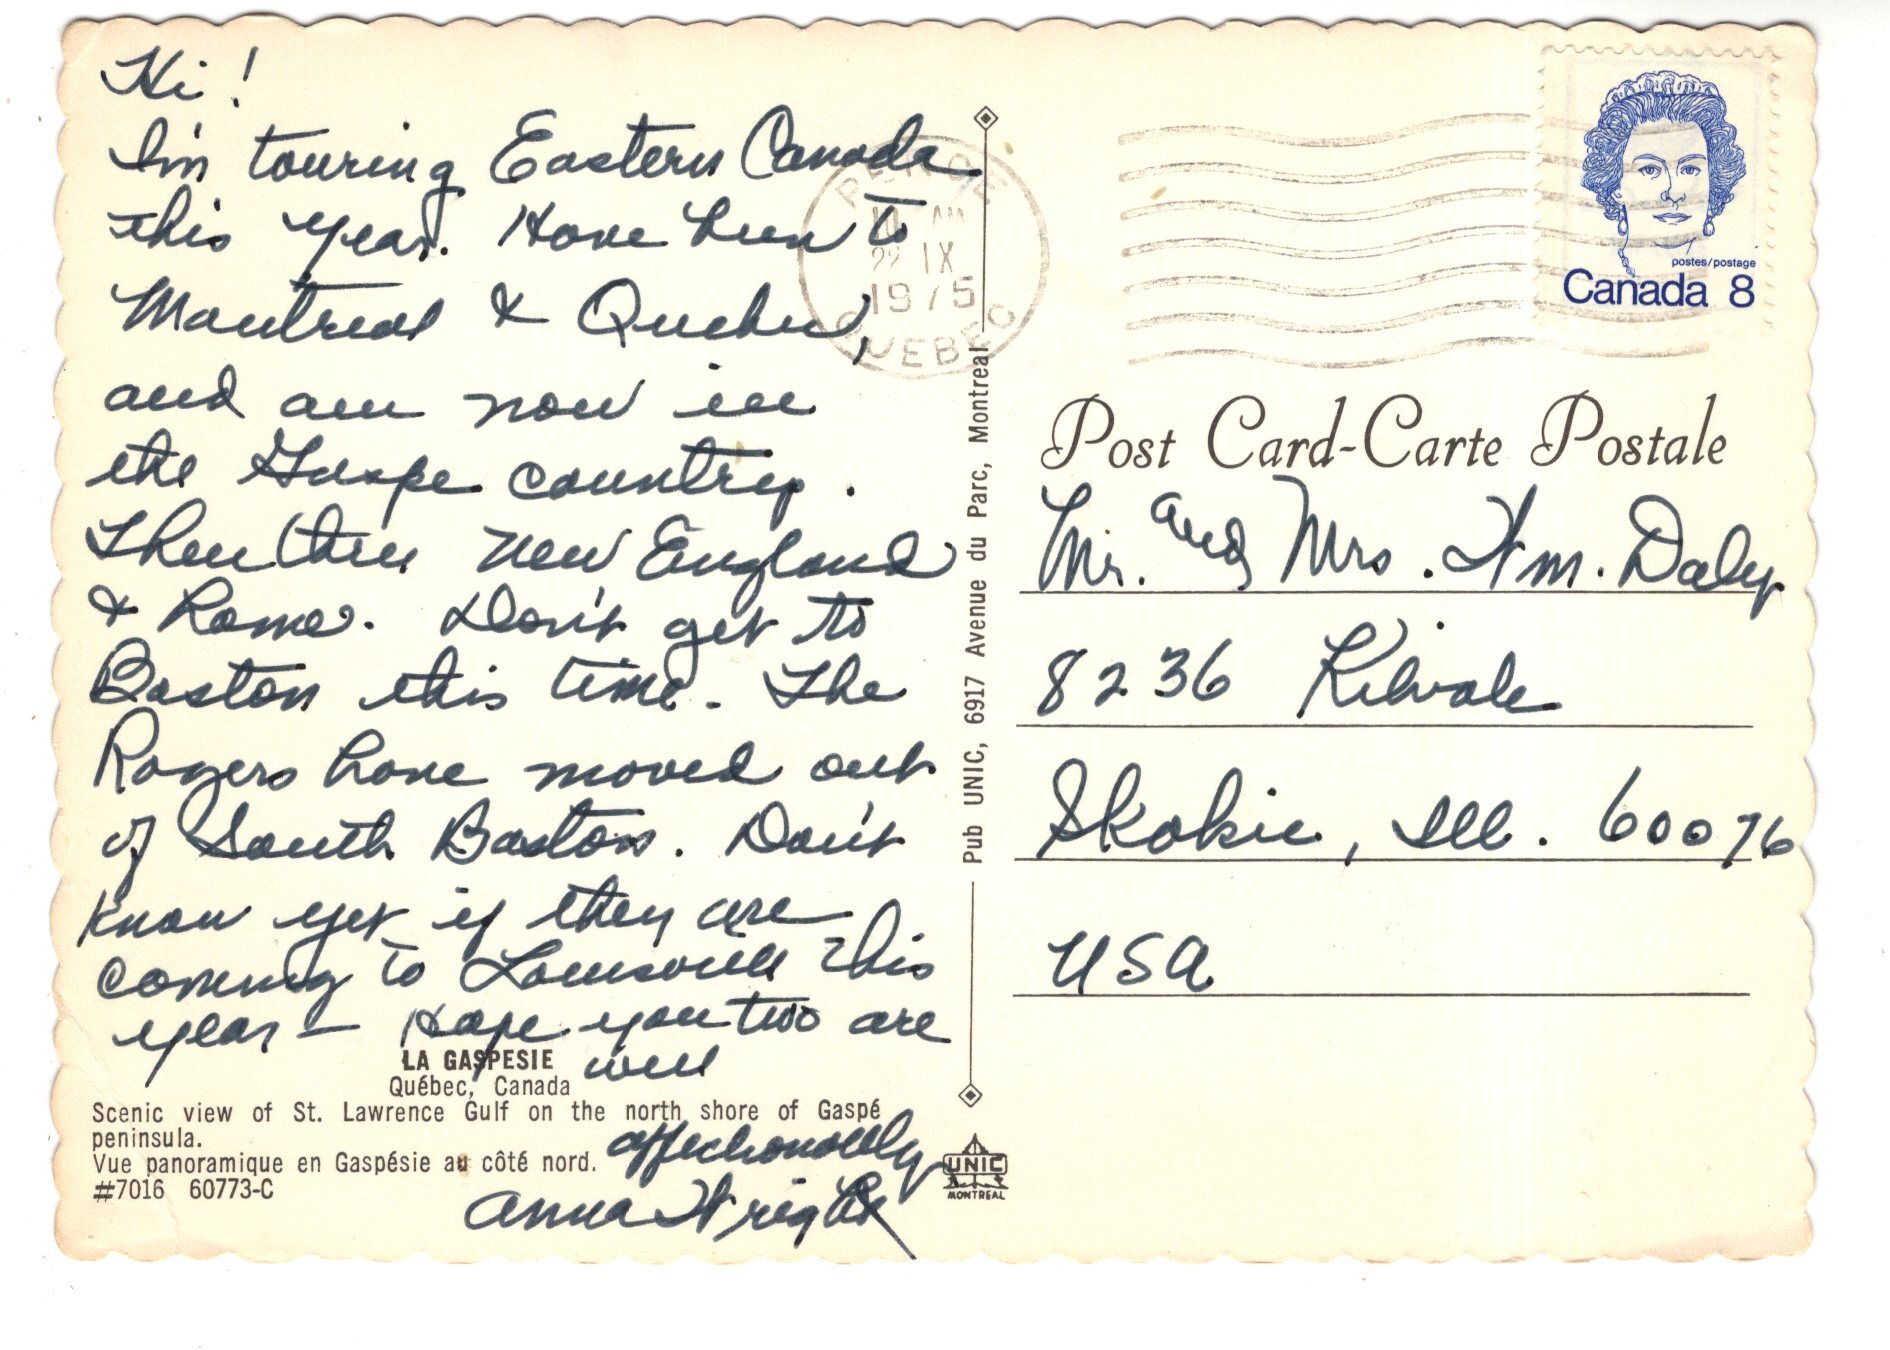 Hi!
I'm touring Eastern Canada
this year. Have been to
Montreal & Quebec,
and am now in
the Gaspe country.
Then thru New England
& home. Don't get to
Boston this time. The
Rogers have moved out
of South Boston. Don't
know yet if they are
coming to Louisville this
year — Hope you two are
well
affectionately
Anna Wright
LA GASPESIE
Québec, Canada
Scenic view of St. Lawrence Gulf on the north shore of Gaspé
peninsula.
Vue panoramique en Gaspésie au côté nord.
#7016 60773-C
Pub UNIC, 6917 Avenue du Parc, Montreal
UNIC
MONTREAL
PERCE
AM
22 IX
1975
QUEBEC
postes/postage
Canada 8
Post Card-Carte Postale
Mr. and Mrs. Wm. Daly
8236 Kilvale
Skokie, Ill. 60076
USA